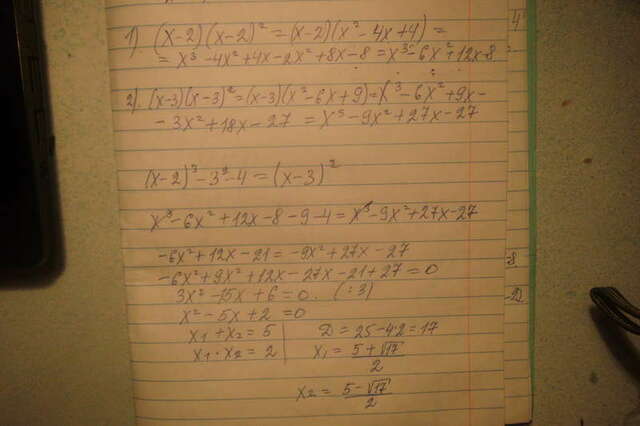 1). (x-2)(x-2)² = (x-2)(x²-4x+4) =
= x³-4x²+4x-2x²+8x-8 = x³-6x²+12x-8
2). (x-3)(x-3)² = (x-3)(x²-6x+9) = x³-6x²+9x-
-3x²+18x-27 = x³-9x²+27x-27
(x-2)³-3²-4 = (x-3)²
x³-6x²+12x-8-9-4 = x³-9x²+27x-27
-6x²+12x-21 = -9x²+27x-27
-6x²+9x²+12x-27x-21+27 = 0
3x²-15x+6 = 0. (:3)
x²-5x+2 = 0
x₁+x₂ = 5 | D = 25-4·2 = 17
x₁·x₂ = 2 | x₁ = (5+√17)/2
x₂ = (5-√17)/2